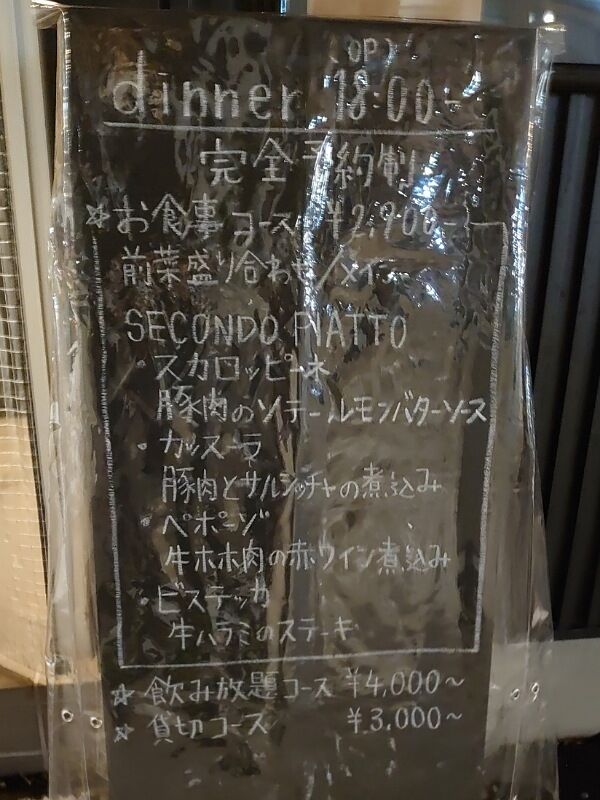 OP
dinner 18:00~
完全予約制
☆お食事コース ¥2,900~
前菜盛り合わせ/メイン
SECONDO PIATTO
・スカロッピーネ
豚肉のソテールモンバターソース
・カッスーラ
豚肉とサルシッチャの煮込み
・ペポーゾ
牛ホホ肉の赤ワイン煮込み
・ビステッカ
牛ハラミのステーキ
☆飲み放題コース ¥4,000~
☆貸切コース ¥3,000~